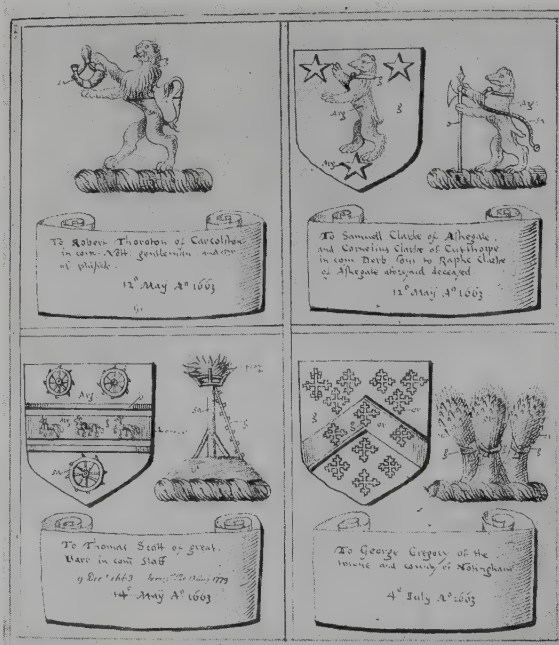 To Robert Thoroton of Carcolston
in com. Nott. gentleman and
of phisick.
12° May A° 1663
To Samuell Clarke of Ashegate
and Cornelius Clarke of Cutthorpe
in com Derb. Sons to Raphe Clarke
of Ashegate aforesaid deceased
12° May A° 1663
Arg
Arg
To Thomas Scott of great
Barr in com Staff
9 Dec 1663
14° May A° 1663
Arg
Arg
or
or
To George Gregory of the
towne and county of Notingham
4° July A° 1663